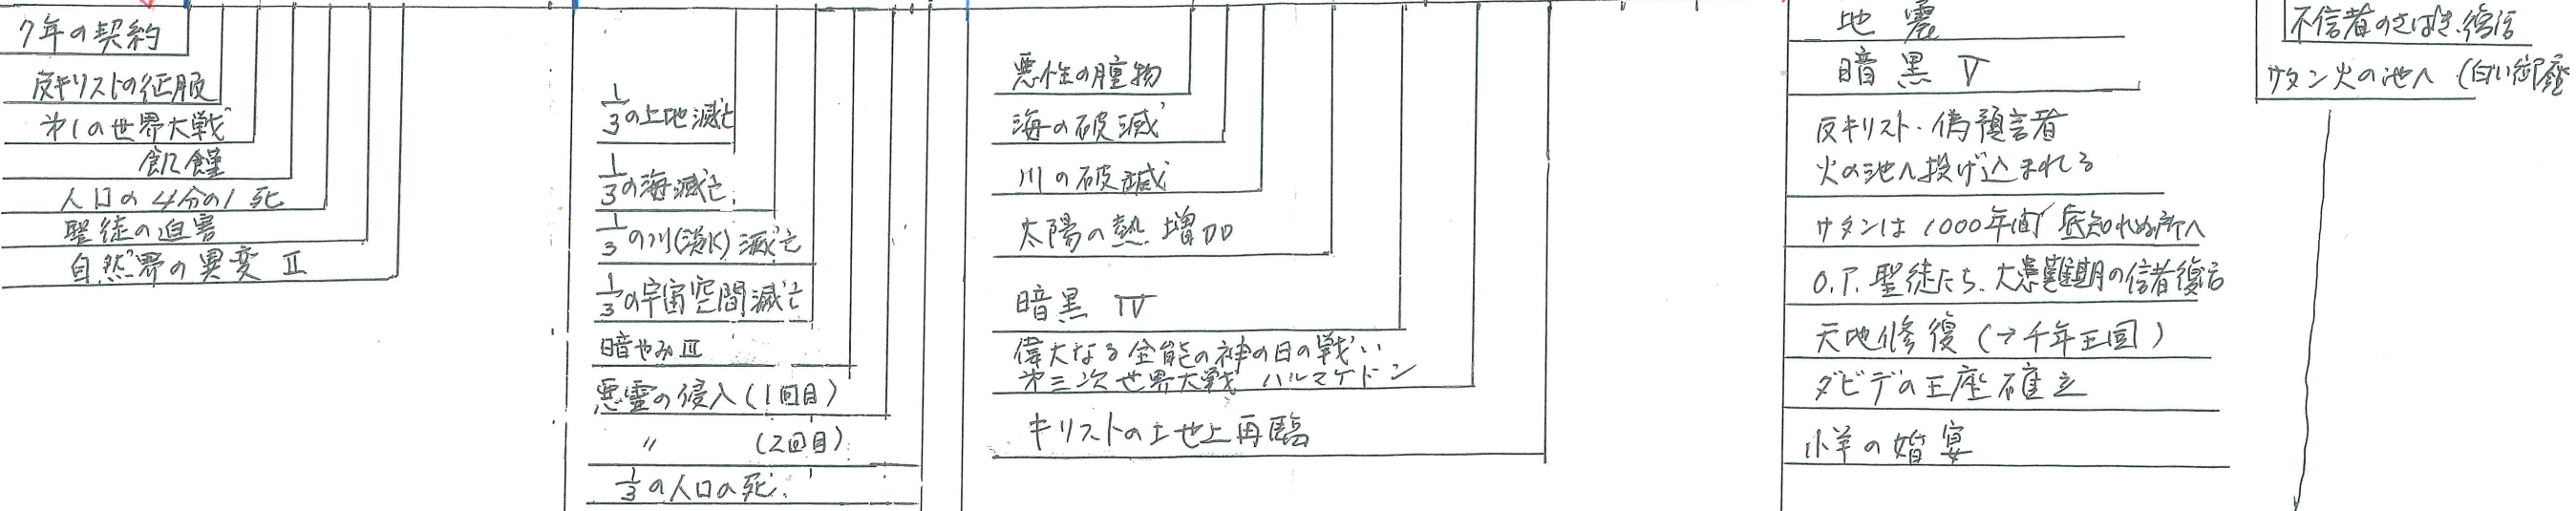 7年の契約
反キリストの征服
第1の世界大戦
飢饉
人口の4分の1 死
聖徒の迫害
自然界の異変 II
1/3の土地滅亡
1/3の海滅亡.
1/3の川(淡水)滅亡
1/3の宇宙空間滅亡
暗やみ III
悪霊の侵入(1回目)
〃 (2回目)
1/3の人口の死.
悪性の腫物
海の破滅
川の破滅
太陽の熱増加
暗黒 IV
偉大なる全能の神の日の戦い
第三次世界大戦 ハルマゲドン
キリストの地上再臨
地震
暗黒 V
反キリスト・偽預言者
火の池へ投げ込まれる
サタンは1000年間底知れぬ所へ
O.T.聖徒たち.大患難期の信者復活
天地修復(→千年王国)
ダビデの王座確立
小羊の婚宴
不信者のさばき.復活
サタン火の池へ(白い御座